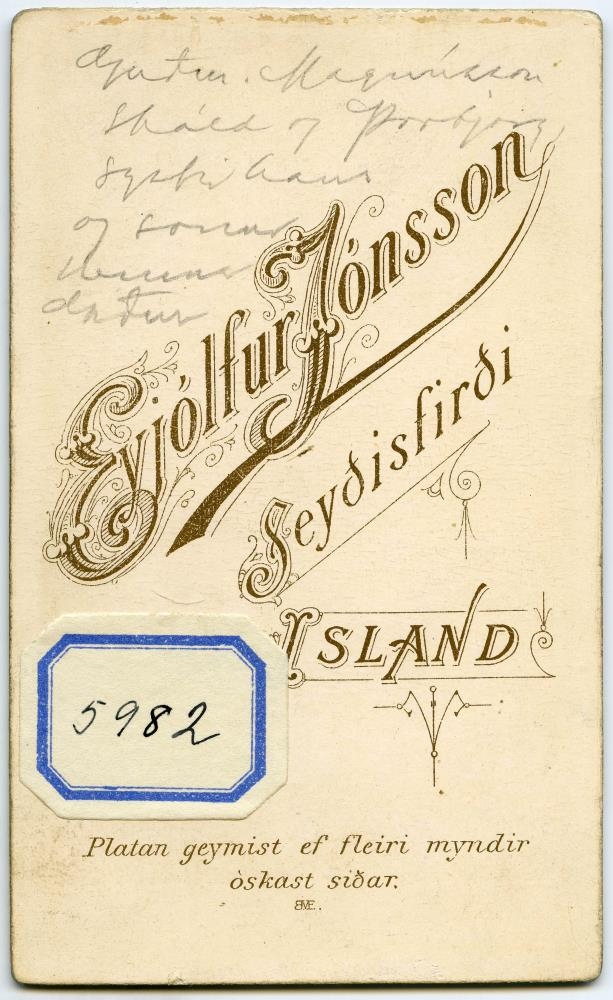 Guðm. Magnússon
skáld og Þorbjörg
systir hans
og sonur
hennar
Eyjólfur Jónsson
Seyðisfirði
ISLAND
5982
Platan geymist ef fleiri myndir
òskast siðar.